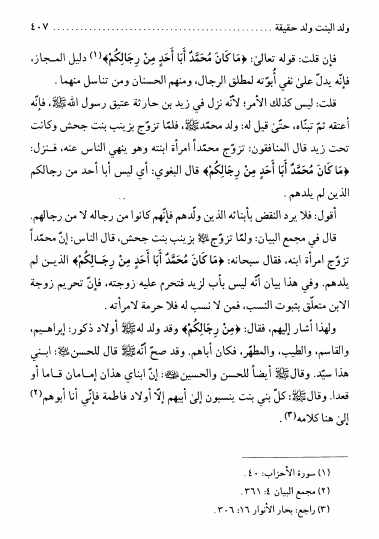 ولد البنت ولد حقيقة ........................................ ٤٠٧
فإن قلت: قوله تعالىٰ: ﴿مَا كَانَ مُحَمَّدٌ أَبَا أَحَدٍ مِنْ رِجَالِكُمْ﴾(١) دليل المجاز،
فإنّه يدلّ علىٰ نفي أُبوّته لمطلق الرجال، ومنهم الحسنان ومن تناسل منهما.
قلت: ليس كذلك الأمر؛ لأنّه نزل في زيد بن حارثة عتيق رسول الله ﷺ، فإنّه
أعتقه ثمّ تبنّاه، حتّىٰ قيل له: ولد محمّد ﷺ، فلمّا تزوّج بزينب بنت جحش وكانت
تحت زيد قال المنافقون: تزوّج محمّداً امرأة ابنته وهو ينهي الناس عنه، فنزل:
﴿مَا كَانَ مُحَمَّدٌ أَبَا أَحَدٍ مِنْ رِجَالِكُمْ﴾ قال البغوي: أي ليس أبا أحد من رجالكم
الذين لم يلدهم.
أقول: فلا يرد النقض بأبنائه الذين ولدهم فإنّهم كانوا من رجاله لا من رجالهم.
قال في مجمع البيان: ولمّا تزوّج ﷺ بزينب بنت جحش، قال الناس: إنّ محمّداً
تزوّج امرأة ابنه، فقال سبحانه: ﴿مَا كَانَ مُحَمَّدٌ أَبَا أَحَدٍ مِنْ رِجَـالِكُمْ﴾ الذيـن لم
يلدهم. وفي هذا بيان أنّه ليس بأب لزيد فتحرم عليه زوجته، فإنّ تحريم زوجة
الابن متعلّق بثبوت النسب، فمن لا نسب له فلا حرمة لامرأته.
ولهذا أشار إليهم، فقال: ﴿مِنْ رِجَالِكُمْ﴾ وقد ولد له ﷺ أولاد ذكور: إبراهيم،
والقاسم، والطيب، والمطهّر، فكان أباهم. وقد صحّ أنّه ﷺ قال للحسن ﵇: ابـني
هذا سيّد. وقال ﷺ أيضاً للحسن والحسين ﵉: إنّ ابناي هذان إمـامان قـاما أو
قعدا. وقال ﷺ: كلّ بني بنت ينسبون إلىٰ أبيهم إلّا أولاد فاطمة فإنّي أنا أبوهم(٢)
إلىٰ هنا كلامه(٣).
(١) سورة الأحزاب: ٤٠.
(٢) مجمع البيان ٤: ٣٦١.
(٣) راجع: بحار الأنوار ١٦: ٣٠٦.